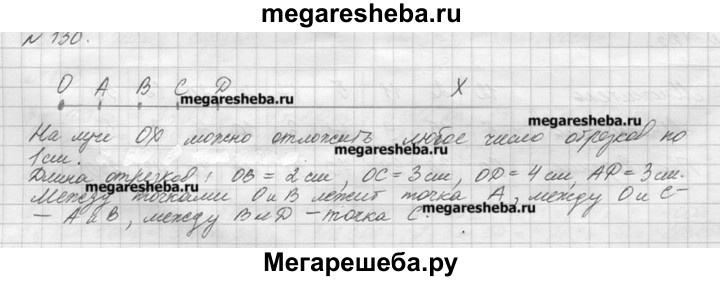 megaresheba.ru
№ 130.
megaresheba.ru
O A B C D X
megaresheba.ru
megaresheba.ru
На луче OX можно отложить любое число отрезков по
1 см.
Длина отрезков: OB = 2 см, OC = 3 см, OD = 4 см, AD = 3 см.
megaresheba.ru
megaresheba.ru
Между точками O и B лежит точка A, между O и C –
– A и B, между B и D – точка C.
Мегарешеба.ру